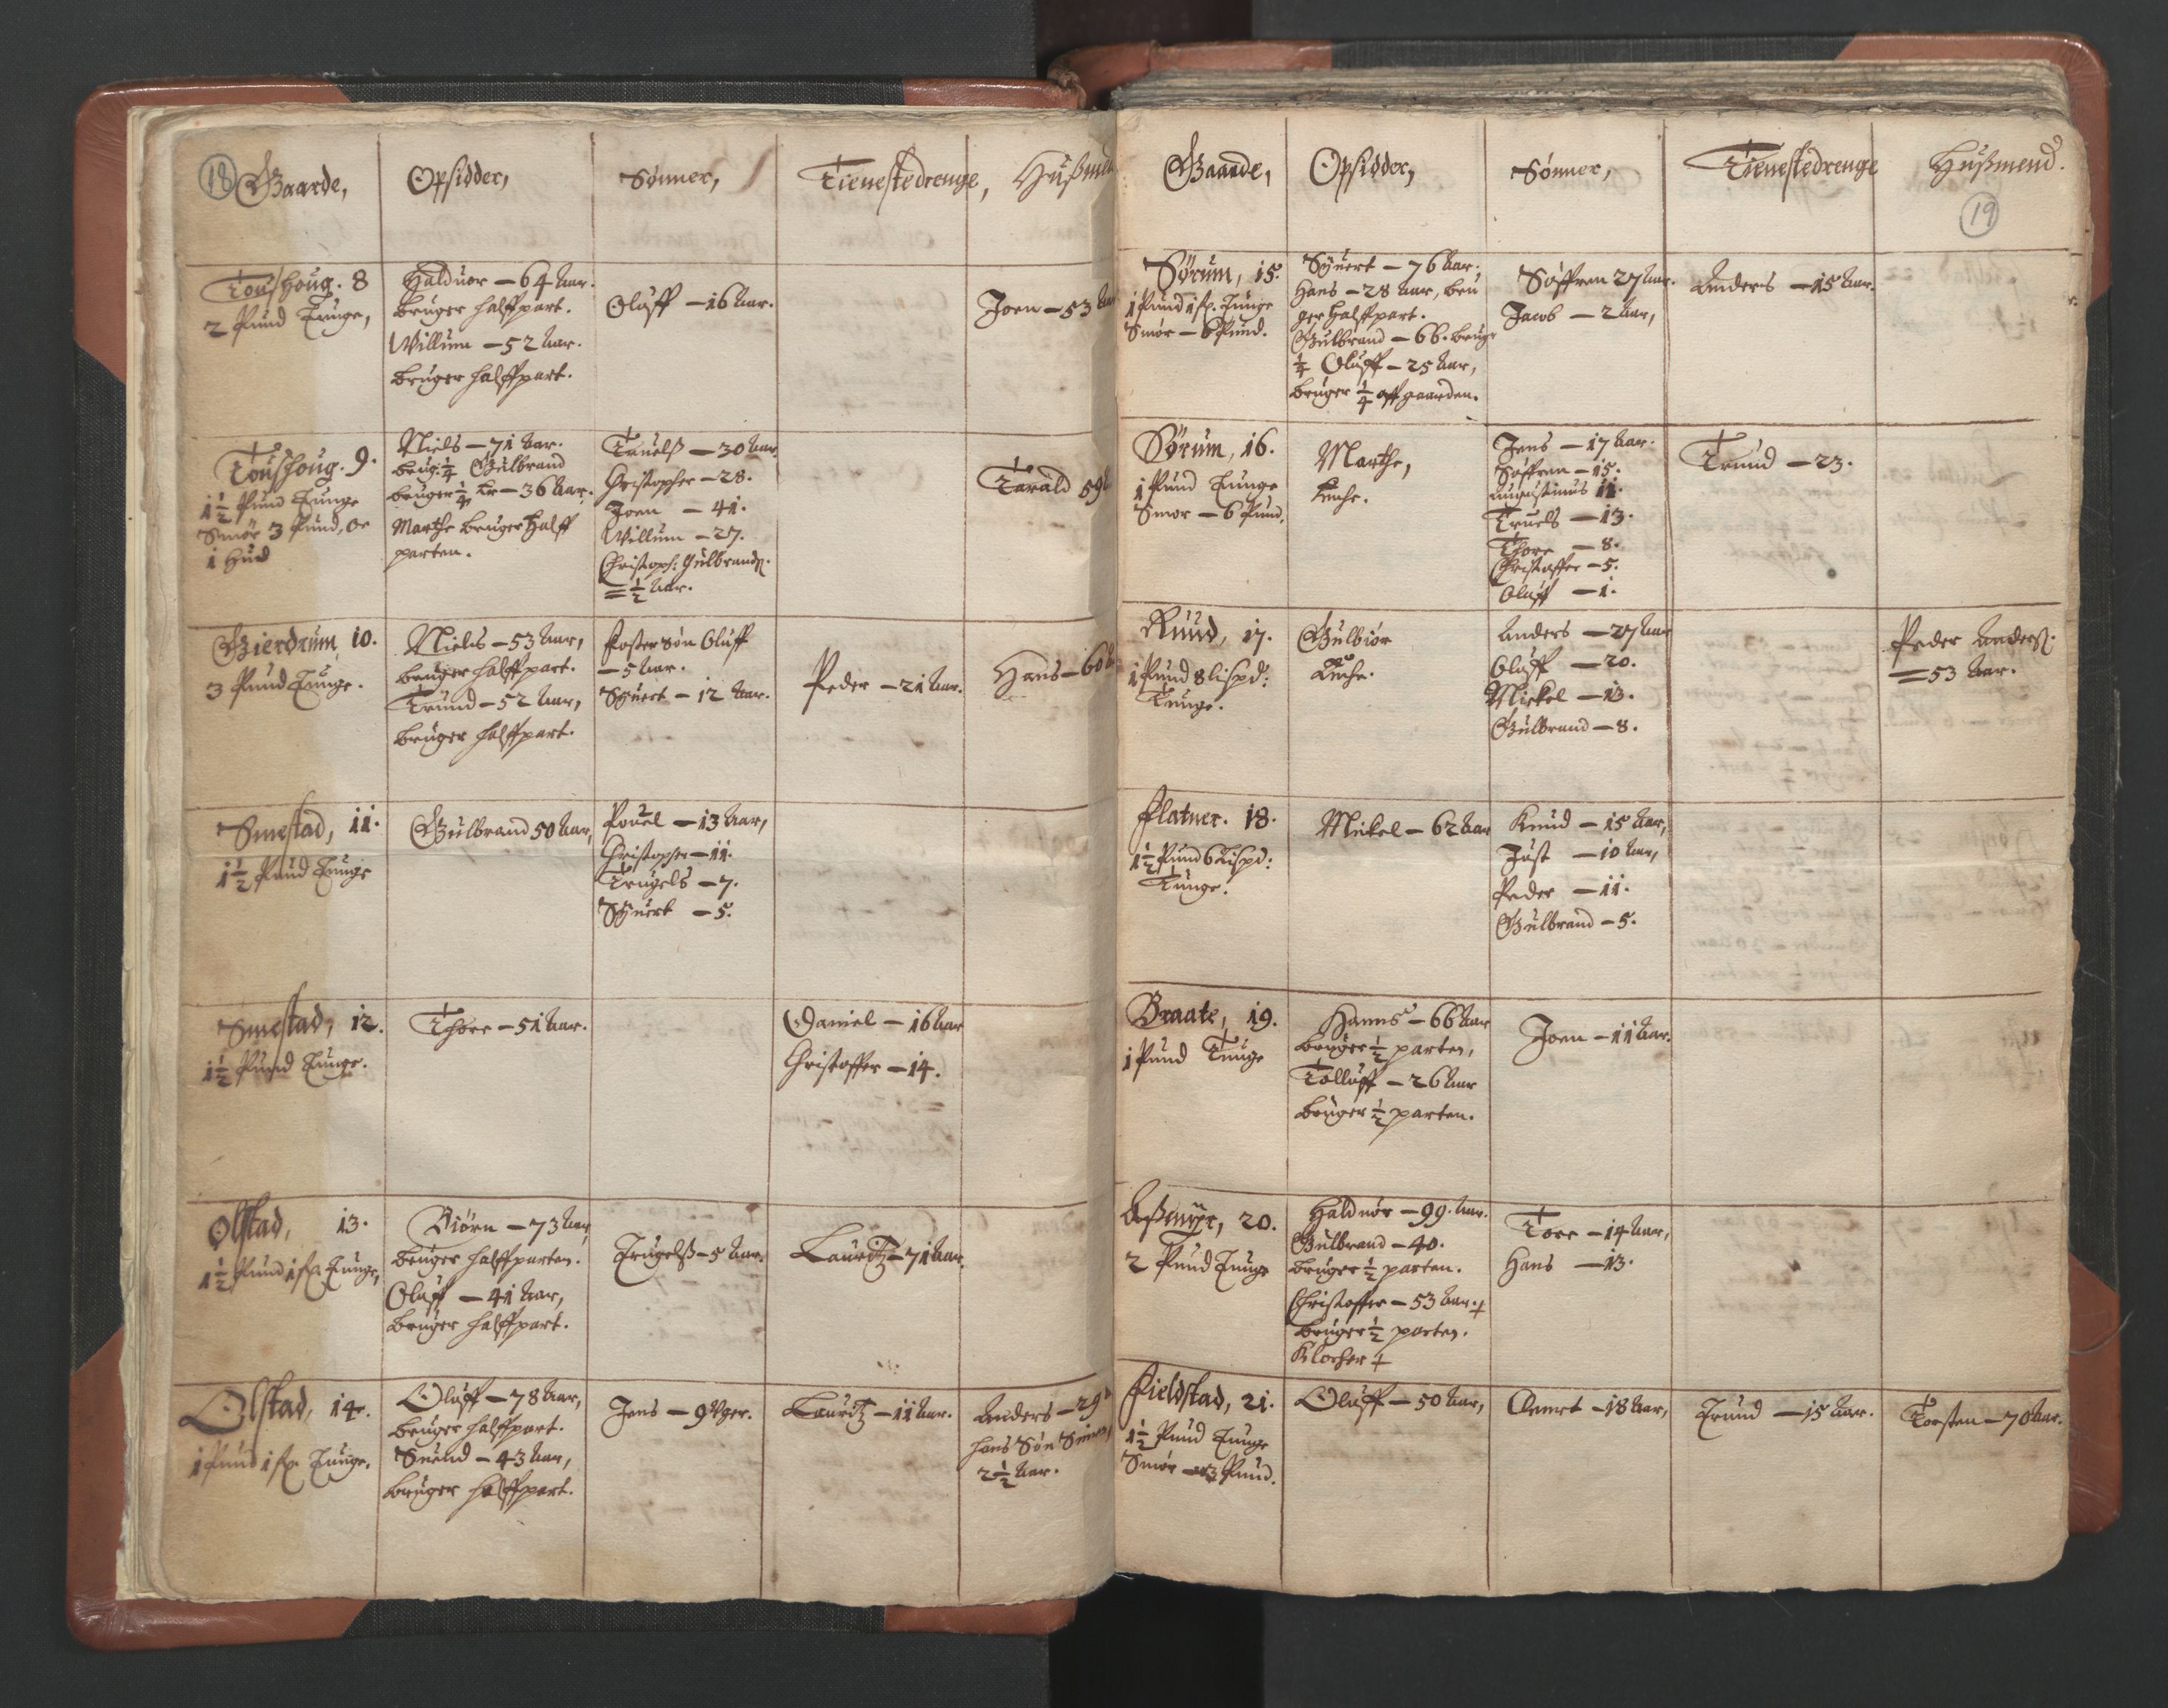 18
Gaarde,
Opsidder,
Sønner,
Tienestedrenge,
Hußmend
Toushoug. 8
2 Pund Tunge,
Halduor – 64 Aar.
bruger halffpart.
Willum – 52 Aar.
bruger halffpart.
Oluff – 16 Aar.
Joen – 53 Aar
Toushoug. 9.
1½ Pund Tunge
Smør 3 Pund, oc
1 Hud
Niels – 71 Aar.
brug: ¼ Gulbrand
bruger ¼ – 36 Aar.
Marthe bruger halff
parten.
Tauelß – 30 Aar
Christopher – 28.
Joen – 41.
Willum – 27.
Christoph: Gulbrandß.
= ½ Aar.
Tarald 59
Gierdrum, 10.
3 Pund Tunge.
Niels – 53 Aar,
bruger halffpart.
Trund – 52 Aar,
bruger halffpart.
Foster søn Oluff
– 5 Aar.
Syuert – 12 Aar.
Peder – 21 Aar.
Hans – 60
Smestad, 11.
1½ Pund Tunge
Gulbrand 50 Aar,
Pouel – 13 Aar,
Christopher – 11.
Trugels – 7.
Syuert – 5.
Smestad, 12.
1½ Pund Tunge.
Thore – 51 Aar.
Daniel – 16 Aar
Christoffer – 14.
Olstad, 13.
1½ Pund 1 fr. Tunge,
Biørn – 73 Aar,
bruger halffparten.
Oluff – 41 Aar,
bruger halffpart.
Trugelß – 5 Aar.
Lauritz – 71 Aar.
Olstad, 14.
1 Pund 1 fr. Tunge.
Oluff – 78 Aar,
bruger halffpart.
Suend – 43 Aar,
bruger halffpart.
Jens – 9 Uger.
Lauritz – 11 Aar.
Anders – 29
hans Søn
2½ Aar.
Gaarde,
Opsidder,
Sønner,
Tienestedrenge
Hußmend.
19
Sørum, 15.
1 Pund 1 fr. Tunge
Smør – 6 Pund.
Syuert – 76 Aar.
Hans – 28 Aar, bru
ger halffpart.
Gulbrand – 66. bruger
¼ Oluff – 25 Aar,
bruger ¼ aff gaarden.
Søffren 27 Aar.
Jacob – 2 Aar,
Anders – 15 Aar.
Sørum, 16.
1 Pund Tunge
Smør – 6 Pund.
Marthe,
Enche.
Jens – 17 Aar.
Søffren – 15.
Augustinus 11.
Truels – 13.
Thore – 8.
Christoffer – 5.
Oluff – 1.
Trund – 23.
Ruud, 17.
1 Pund 8 lispd:
Tunge.
Gulbiør
Enche.
Anders – 27 Aar
Oluff – 20.
Mickel – 13.
Gulbrand – 8.
Peder Anderß.
= 53 Aar.
Flatner. 18.
1½ Pund 6 Lispd:
Tunge.
Mickel – 62 Aar
Knud – 15 Aar,
Just – 10 Aar,
Peder – 11.
Gulbrand – 5.
Braate, 19.
1 Pund Tunge
Hanns – 66 Aar
bruger ½ parten,
Tolluff – 26 Aar
bruger ½ parten.
Joen – 11 Aar.
Aßmyr, 20.
2 Pund Tunge
Halduor – 99. Aar.
Gulbrand – 40.
bruger ½ parten.
Christoffer – 53 Aar. +
bruger ½ parten.
Klocher +
Tore – 14 Aar,
Hans – 13.
Fieldstad, 21.
1½ Pund Tunge
Smør – 3 Pund.
Oluff – 50 Aar,
Amort – 18 Aar,
Trund – 15 Aar.
Torsten – 70 Aar.